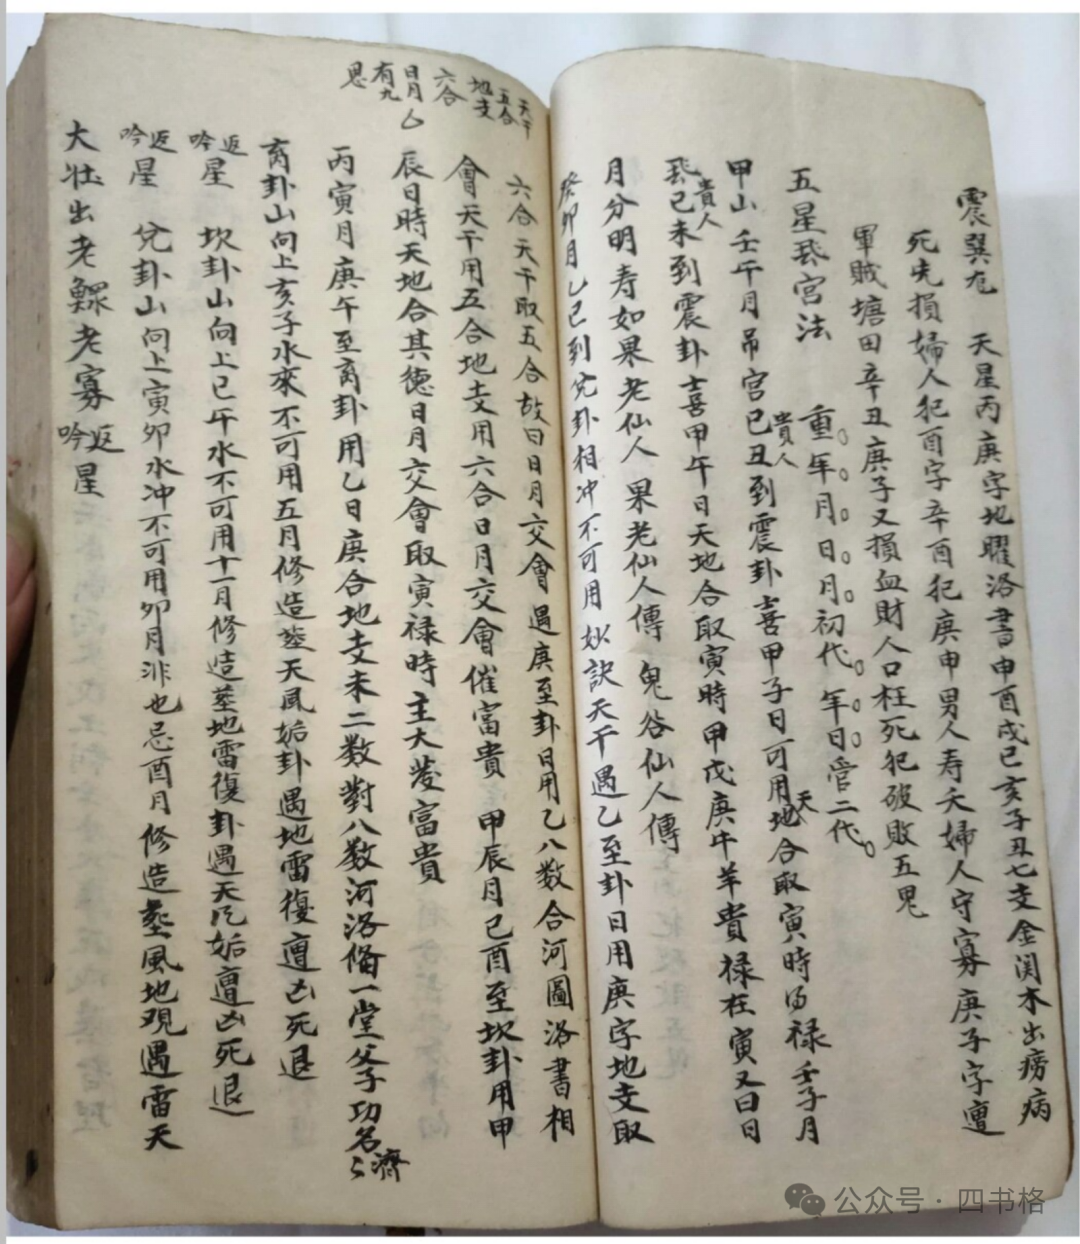 震巽九　天星丙庚字地曜洛書申酉戌己亥子丑七支金関木出癆病
死先損婦人犯酉字辛酉犯庚申男人寿夭婦人守寡庚子字遭
軍賊塘田辛丑庚子又損血財人口枉死犯破敗五鬼
五星飛宮法　重年月日月初代年日管二代
甲山　壬午月吊宫已丑到震卦喜甲子日可用地天合取寅時為禄壬子月
貴人
飛已未到震卦喜甲午日天地合取寅時甲戊庚牛羊貴禄在寅又曰日
貴人
月分明寿如果老仙人　果老仙人傳　鬼谷仙人傳
癸卯月乙已到兌卦相冲不可用　妙訣天干遇乙至卦日用庚字地支取
天干
五合
地支
六合
日月
有九
思
六合天干取五合故曰日月交會遇庚至卦日用乙八数合河圖洛書相
會天干用五合地支用六合日月交會催富貴　甲辰月己酉至坎卦用甲
辰日時天地合其德日月交會取寅禄時主大發富貴
丙寅月庚午至离卦用乙日庚合地支未二数對八数河洛俻一堂父子功名
濟
离卦山向上亥子水來不可用五月修造塟天風姤卦遇地雷復遭凶死退
返吟
星　坎卦山向上巳午水不可用十一月修造塟地雷復卦遇天风姤遭凶死退
返吟
星　兌卦山向上寅卯水冲不可用卯月非也忌酉月修造塟風地观遇雷天
大壮出老鰥老寡
返吟
星
公众号·四书格